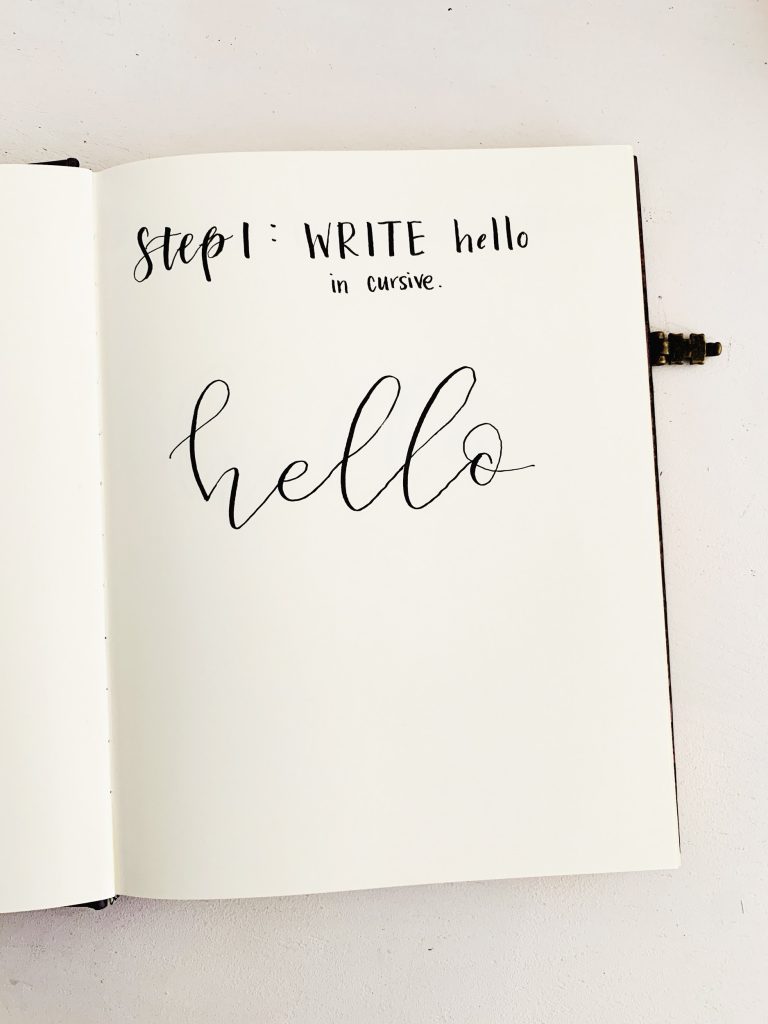 Step 1: WRITE hello
in cursive.
hello